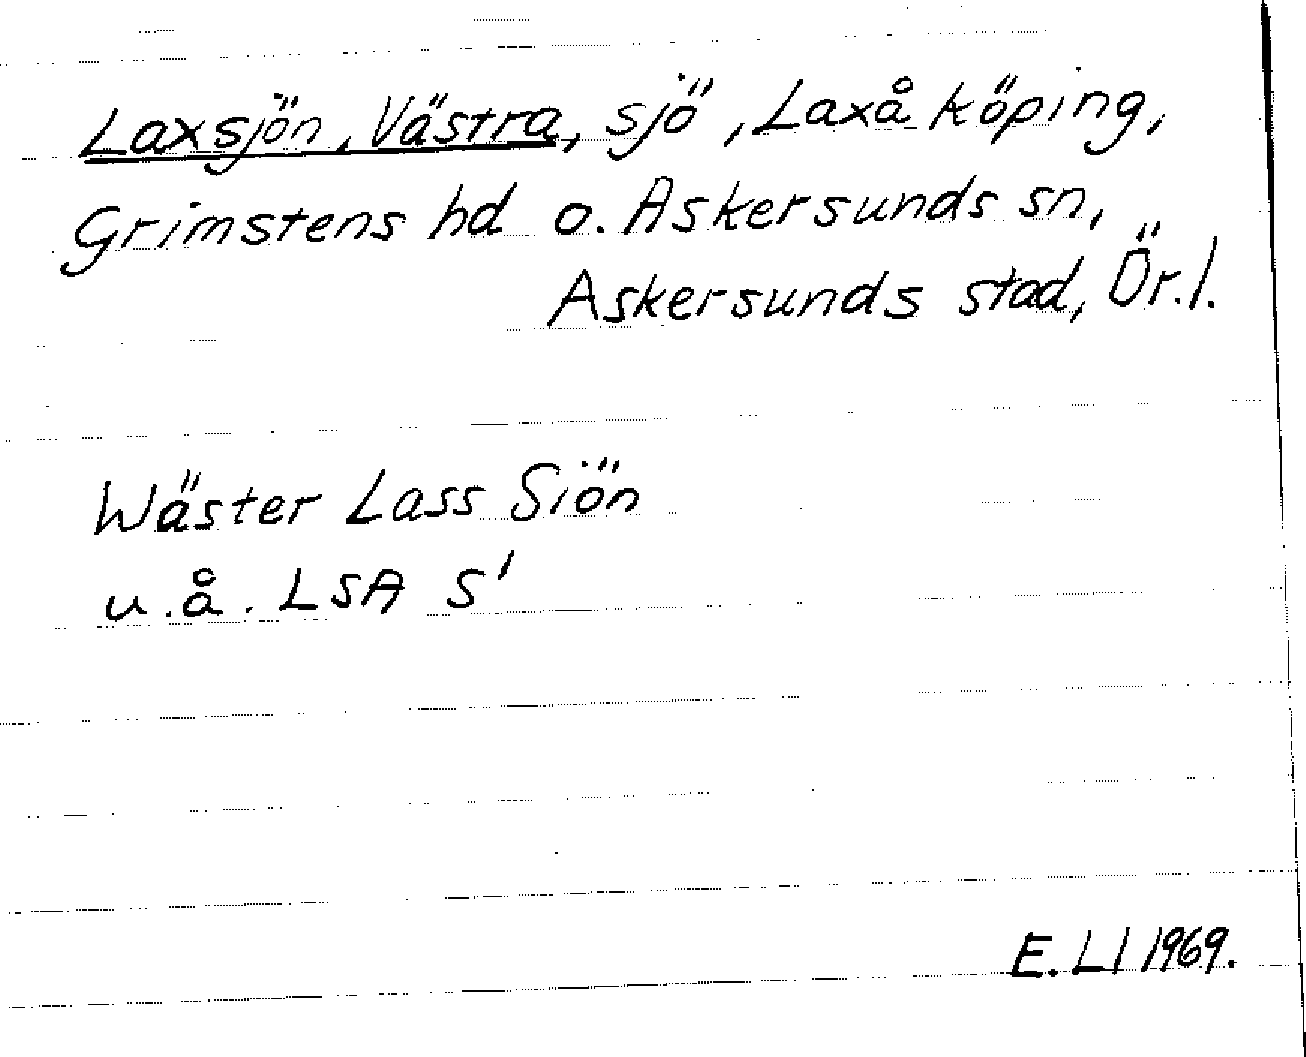 Laxsjön, Västra, sjö, Laxå köping,
Grimstens hd o. Askersunds sn,
Askersunds stad, Ör.l.
Wäster Lass Siön
u.å. LSA S'
E. Ll 1969.